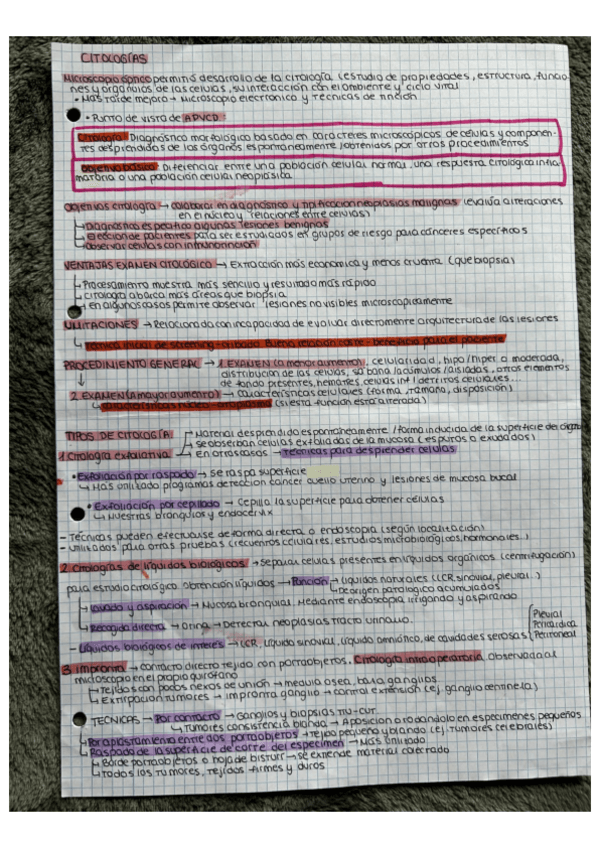 CITOLOGÍAS
Microscopio óptico permitió desarrollo de la citología (estudio de propiedades, estructura, funcio-
nes y orgánulos de las células, su interacción con el ambiente y ciclo vital
• Más tarde mejora → Microscopio electrónico y técnicas de tinción
• Punto de vista de
Citología: Diagnóstico morfológico basado en caracteres microscópicos de células y componen-
tes desprendidos de los órganos espontáneamente /obtenidos por otros procedimientos
Objetivo básico: Diferenciar entre una población celular normal, una respuesta citológica infla-
matoria o una población celular neoplásica
Objetivos citología → colaborar en diagnóstico y tipificación neoplasias malignas (evalúa alteraciones
en el núcleo y relaciones entre células)
↳ Diagnóstico específico algunas lesiones benignas
↳ elección de pacientes para ser estudiados en grupos de riesgo para cánceres específicos
↳ observar células con inmunotinción
VENTAJAS EXAMEN CITOLÓGICO → Extracción más económica y menos cruenta (que biopsia)
↳ Procesamiento muestra más sencillo y resultado más rápido
↳ citología abarca más áreas que biopsia
↳ en algunos casos permite observar lesiones no visibles microscópicamente
LIMITACIONES → Relacionada con incapacidad de evaluar directamente arquitectura de las lesiones
↳ Técnica inicial de screening-cribado. Buena relación coste - beneficio para el paciente
PROCEDIMIENTO GENERAL → 1 EXAMEN (a menor aumento), celularidad, hipo/hiper o moderada,
distribución de las células, sábana /acúmulos /aisladas, otros elementos
de fondo presentes, hematíes, células inf / detritos celulares...
↓
2. EXAMEN (a mayor aumento) → Características celulares (forma, tamaño, disposición)
↳ características núcleo-citoplasma (si esta función está alterada)
TIPOS DE CITOLOGÍA
Material desprendido espontáneamente / forma inducida de la superficie del órgano
1 Citología exfoliativa
se observarán células exfoliadas de la mucosa (esputos o exudados)
en otros casos → Técnicas para desprender células
• Exfoliación por raspado → Se raspa superficie
↳ Más utilizado programas detección cáncer cuello uterino y lesiones de mucosa bucal
• Exfoliación por cepillado → Cepilla la superficie para obtener células
↳ Muestras bronquios y endocérvix
- Técnicas pueden efectuarse de forma directa o endoscopia (según localización)
- utilizados para otras pruebas (recuentos celulares, estudios microbiológicos, hormonales)
2. Citologías de líquidos biológicos → Separar células presentes en líquidos orgánicos (centrifugación)
para estudio citológico obtención líquidos → Punción → líquidos naturales (LCR, sinovial, pleural..)
↳ De origen patológico acumulados
↳ Lavado y aspiración → Mucosa bronquial. Mediante endoscopia irrigando y aspirando
↳ Recogida directa → Orina → Detectar neoplasias tracto urinario.
- Líquidos biológicos de interés → LCR, líquido sinovial, líquido amniótico, de cavidades serosas
Pleural
Pericárdica
Peritoneal
3. Impronta → Contacto directo tejido con portaobjetos. Citología intraoperatoria. Observada al
microscopio en el propio quirófano
↳ Tejidos con pocos nexos de unión → médula ósea, bazo ganglios
↳ Extirpación tumores → impronta ganglio → control extensión (ej. ganglio centinela)
• TÉCNICAS → Por contacto → Ganglios y biopsias tru-cut.
↳ Tumores consistencia blanda → Aposición o rodándolo en especímenes pequeños
↳ Por aplastamiento entre dos portaobjetos → Tejido pequeño y blando (ej. tumores cerebrales)
↳ Raspado de la superficie de corte del especimen → Más utilizado
↳ Borde portaobjetos o hoja de bisturí → se extiende material obtenido
↳ todos los tumores, tejidos firmes y duros